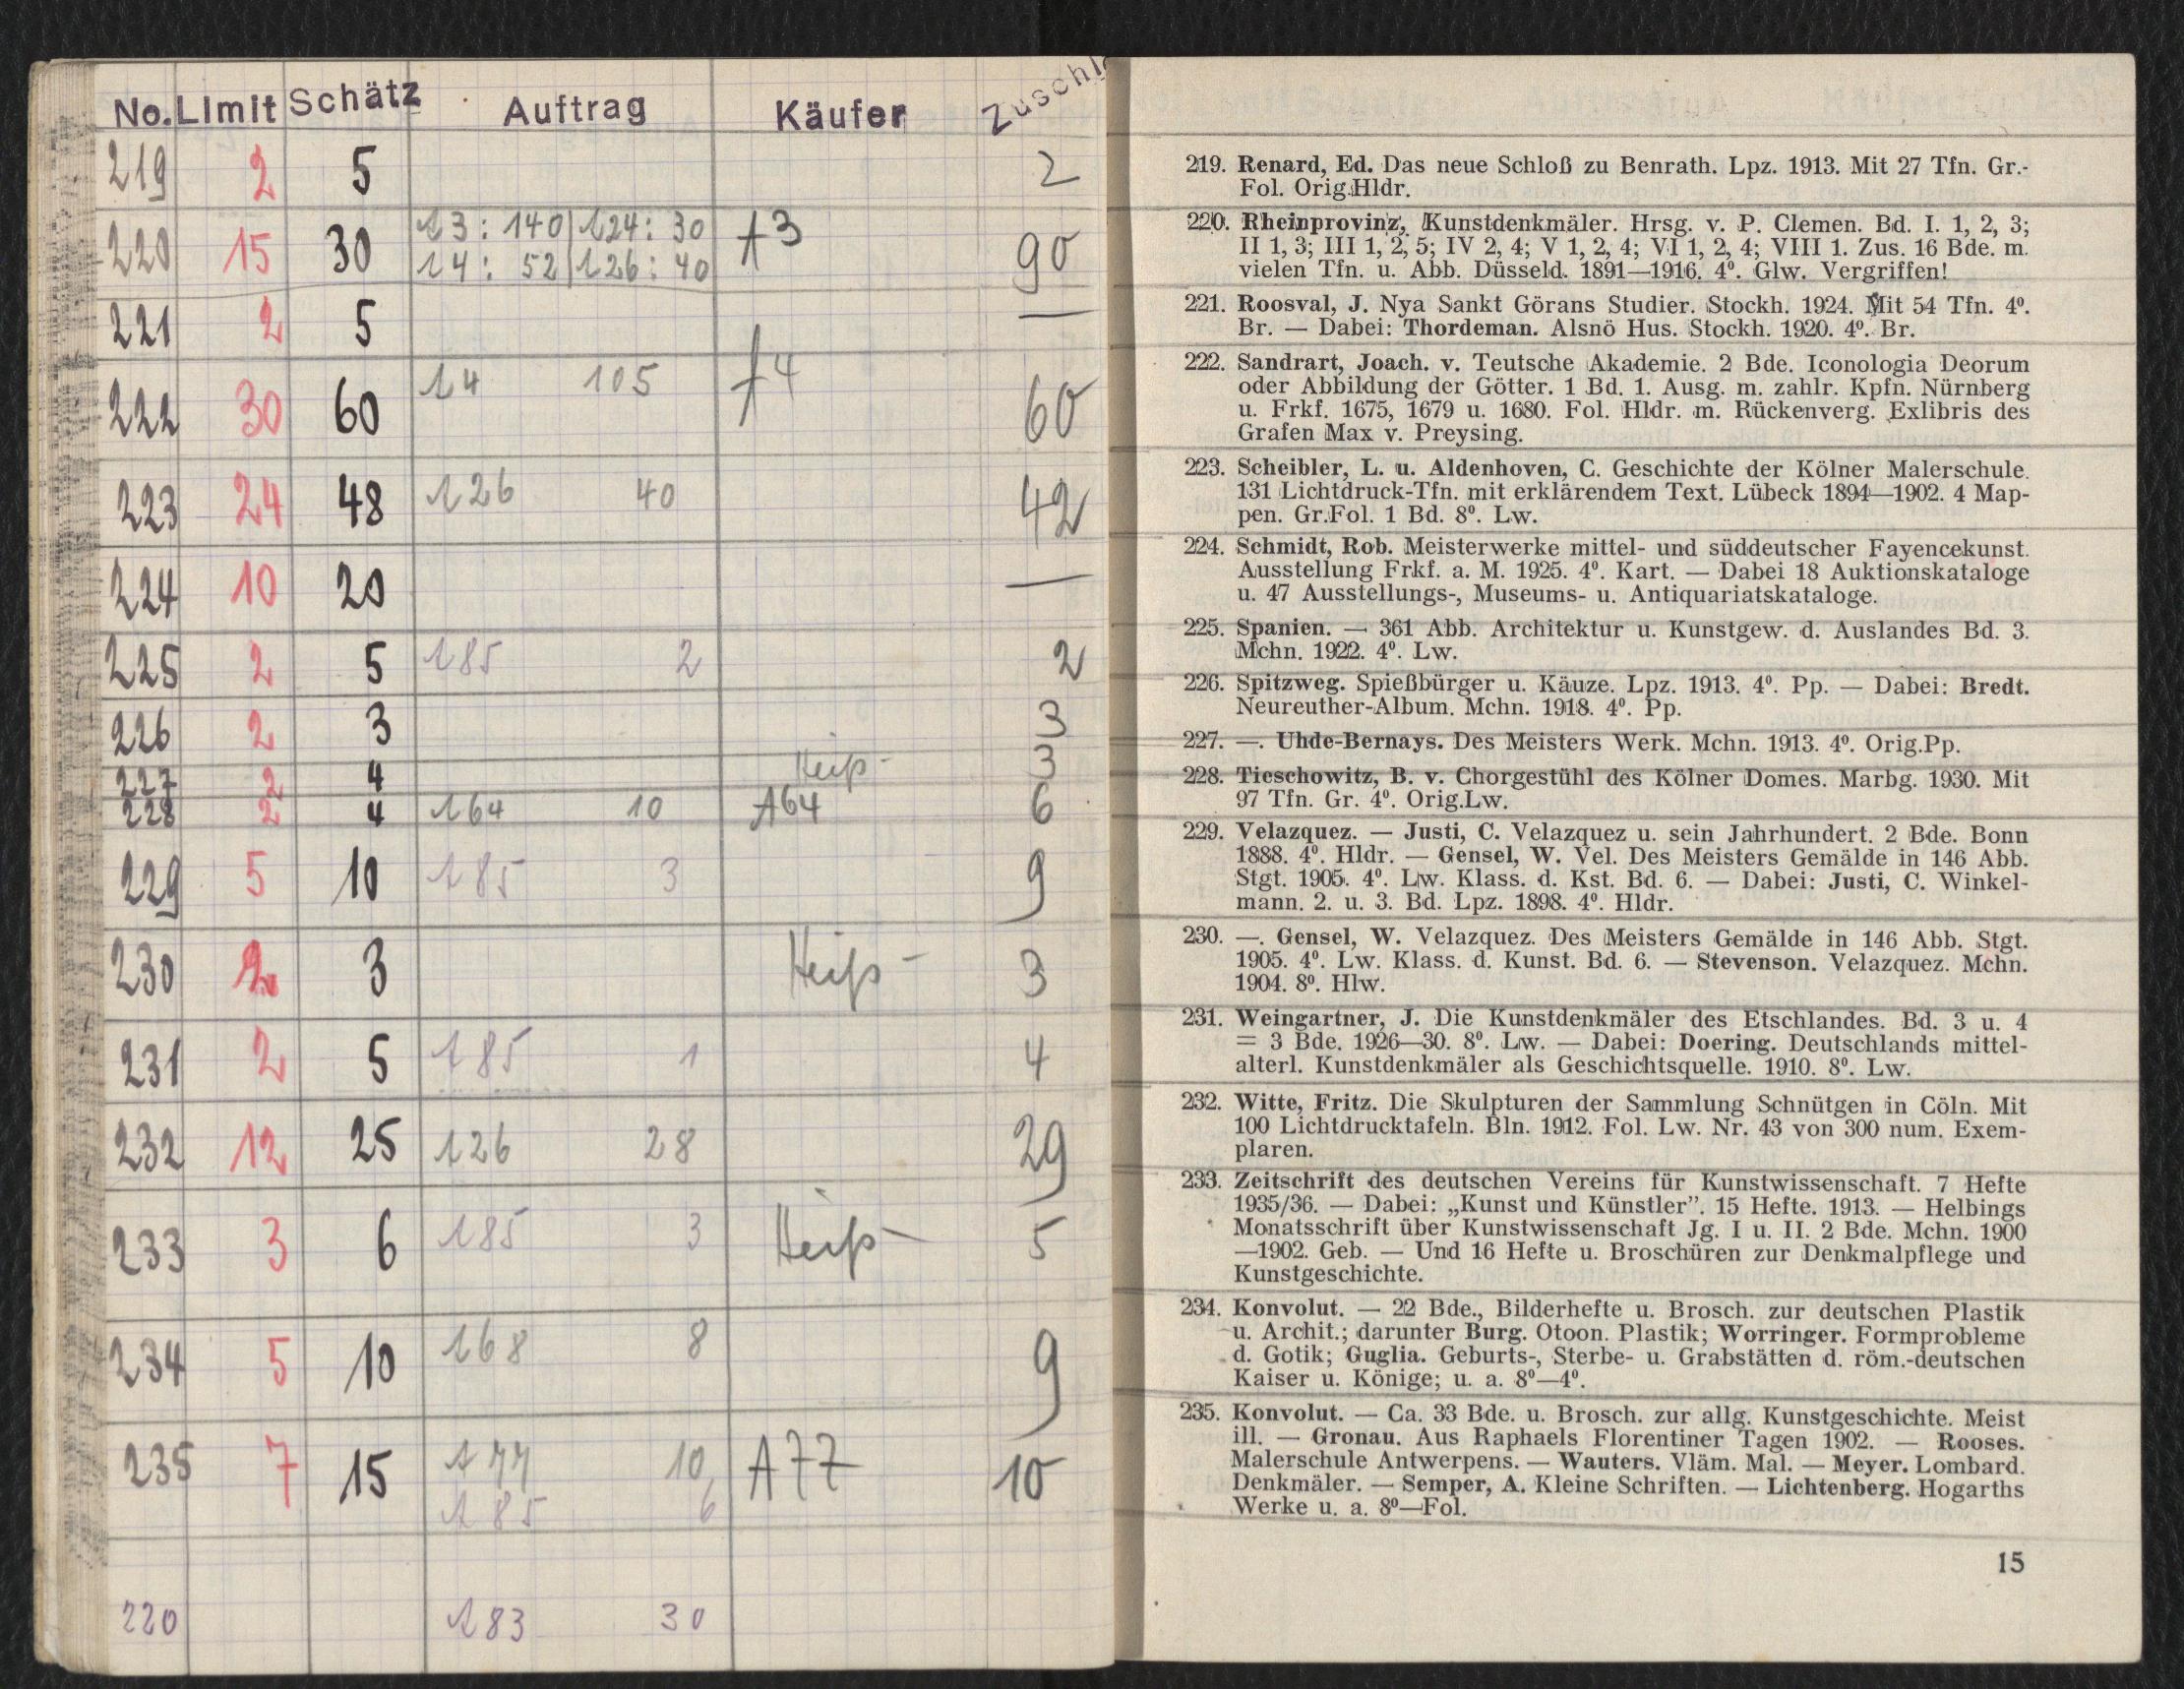 No. Limit Schätz Auftrag Käufer Zuschl
219 2 5 2
220 15 30 A3: 140 A24: 30 A3 90
A4: 52 A26: 40
221 2 5 —
222 30 60 A4 105 A4 60
223 24 48 A26 40 42
224 10 20 —
225 2 5 A85 2 2
226 2 3 3
227 2 4 Heiß - 3
228 2 4 A64 10 A64 6
229 5 10 A85 3 9
230 2 3 Heiß - 3
231 2 5 A85 1 4
232 12 25 A26 28 29
233 3 6 A85 3 Heiß - 5
234 5 10 A68 8 9
235 7 15 A77 10 A77 10
A85 6
220 A83 30
219. Renard, Ed. Das neue Schloß zu Benrath. Lpz. 1913. Mit 27 Tfn. Gr.-
Fol. Orig.Hldr.
220. Rheinprovinz, Kunstdenkmäler. Hrsg. v. P. Clemen. Bd. I. 1, 2, 3;
II 1, 3; III 1, 2, 5; IV 2, 4; V 1, 2, 4; VI 1, 2, 4; VIII 1. Zus. 16 Bde. m.
vielen Tfn. u. Abb. Düsseld. 1891—1916. 4⁰. Glw. Vergriffen!
221. Roosval, J. Nya Sankt Görans Studier. Stockh. 1924. Mit 54 Tfn. 4⁰.
Br. — Dabei: Thordeman. Alsnö Hus. Stockh. 1920. 4⁰. Br.
222. Sandrart, Joach. v. Teutsche Akademie. 2 Bde. Iconologia Deorum
oder Abbildung der Götter. 1 Bd. 1. Ausg. m. zahlr. Kpfn. Nürnberg
u. Frkf. 1675, 1679 u. 1680. Fol. Hldr. m. Rückenverg. Exlibris des
Grafen Max v. Preysing.
223. Scheibler, L. u. Aldenhoven, C. Geschichte der Kölner Malerschule.
131 Lichtdruck-Tfn. mit erklärendem Text. Lübeck 1894—1902. 4 Map-
pen. Gr.Fol. 1 Bd. 8⁰. Lw.
224. Schmidt, Rob. Meisterwerke mittel- und süddeutscher Fayencekunst.
Ausstellung Frkf. a. M. 1925. 4⁰. Kart. — Dabei 18 Auktionskataloge
u. 47 Ausstellungs-, Museums- u. Antiquariatskataloge.
225. Spanien. — 361 Abb. Architektur u. Kunstgew. d. Auslandes Bd. 3.
Mchn. 1922. 4⁰. Lw.
226. Spitzweg. Spießbürger u. Käuze. Lpz. 1913. 4⁰. Pp. — Dabei: Bredt.
Neureuther-Album. Mchn. 1918. 4⁰. Pp.
227. —. Uhde-Bernays. Des Meisters Werk. Mchn. 1913. 4⁰. Orig.Pp.
228. Tieschowitz, B. v. Chorgestühl des Kölner Domes. Marbg. 1930. Mit
97 Tfn. Gr. 4⁰. Orig.Lw.
229. Velazquez. — Justi, C. Velazquez u. sein Jahrhundert. 2 Bde. Bonn
1888. 4⁰. Hldr. — Gensel, W. Vel. Des Meisters Gemälde in 146 Abb.
Stgt. 1905. 4⁰. Lw. Klass. d. Kst. Bd. 6. — Dabei: Justi, C. Winkel-
mann. 2. u. 3. Bd. Lpz. 1898. 4⁰. Hldr.
230. —. Gensel, W. Velazquez. Des Meisters Gemälde in 146 Abb. Stgt.
1905. 4⁰. Lw. Klass. d. Kunst. Bd. 6. — Stevenson. Velazquez. Mchn.
1904. 8⁰. Hlw.
231. Weingartner, J. Die Kunstdenkmäler des Etschlandes. Bd. 3 u. 4
= 3 Bde. 1926—30. 8⁰. Lw. — Dabei: Doering. Deutschlands mittel-
alterl. Kunstdenkmäler als Geschichtsquelle. 1910. 8⁰. Lw.
232. Witte, Fritz. Die Skulpturen der Sammlung Schnütgen in Cöln. Mit
100 Lichtdrucktafeln. Bln. 1912. Fol. Lw. Nr. 43 von 300 num. Exem-
plaren.
233. Zeitschrift des deutschen Vereins für Kunstwissenschaft. 7 Hefte
1935/36. — Dabei: „Kunst und Künstler”. 15 Hefte. 1913. — Helbings
Monatsschrift über Kunstwissenschaft Jg. I u. II. 2 Bde. Mchn. 1900
—1902. Geb. — Und 16 Hefte u. Broschüren zur Denkmalpflege und
Kunstgeschichte.
234. Konvolut. — 22 Bde., Bilderhefte u. Brosch. zur deutschen Plastik
u. Archit.; darunter Burg. Otoon. Plastik; Worringer. Formprobleme
d. Gotik; Guglia. Geburts-, Sterbe- u. Grabstätten d. röm.-deutschen
Kaiser u. Könige; u. a. 8⁰—4⁰.
235. Konvolut. — Ca. 33 Bde. u. Brosch. zur allg. Kunstgeschichte. Meist
ill. — Gronau. Aus Raphaels Florentiner Tagen 1902. — Rooses.
Malerschule Antwerpens. — Wauters. Vläm. Mal. — Meyer. Lombard.
Denkmäler. — Semper, A. Kleine Schriften. — Lichtenberg. Hogarths
Werke u. a. 8⁰—Fol.
15